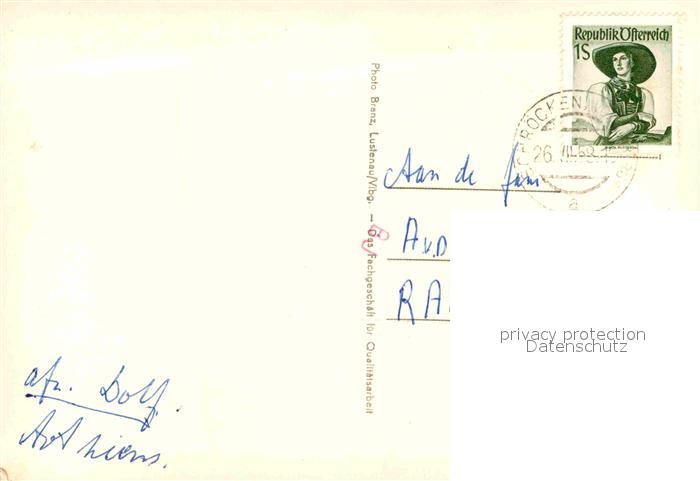 Republik Österreich
1S
SCHRÖCKEN
26. VII. 58
a
Photo Branz, Lustenau/Vlbg. — Das Fachgeschäft für Qualitätsarbeit
Aan de fam
A.v.D
RA
privacy protection
Datenschutz
afz. Dolf.